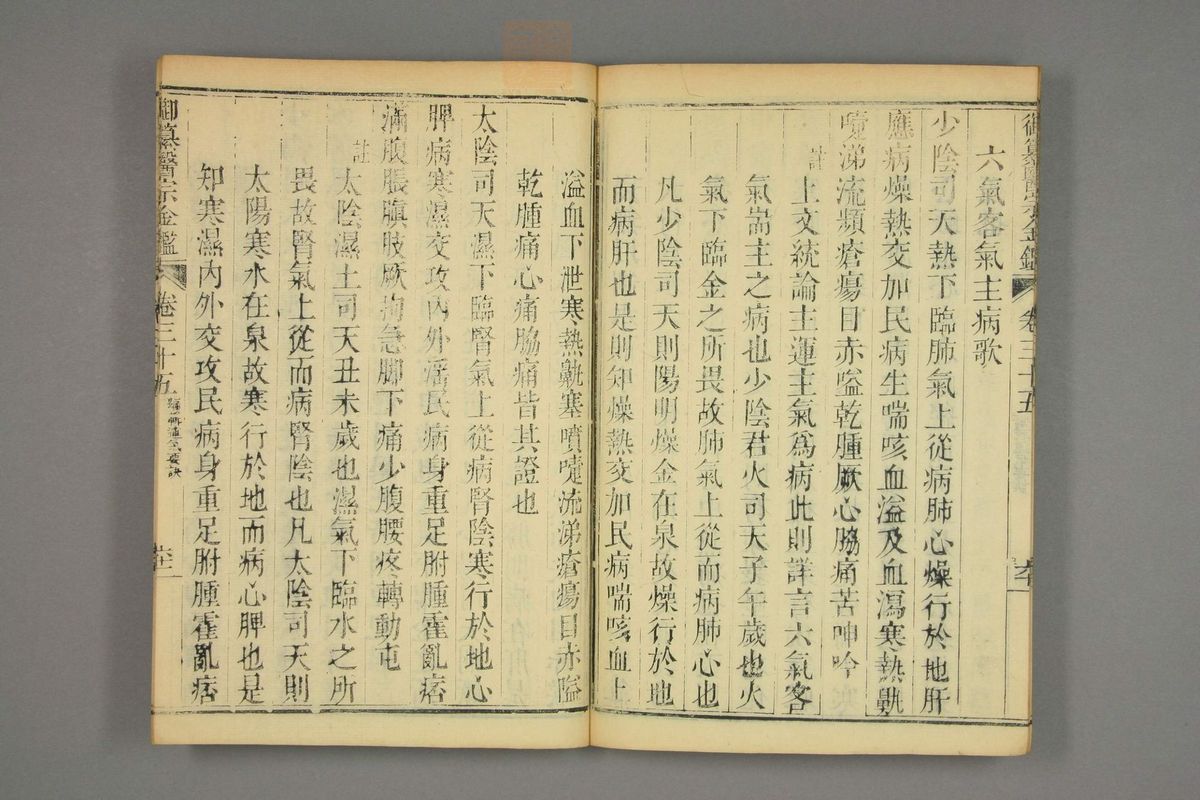 御纂醫宗金鑑 卷三十五
六氣客氣主病歌
少陰司天熱下臨肺氣上從病肺心燥行於地肝
應病燥熱交加民病生喘咳血溢及血瀉寒熱鼽
嚏涕流類瘡瘍目赤嗌乾腫厥心脇痛苦呻吟
註
上文統論主運主氣爲病此則詳言六氣客
氣耑主之病也少陰君火司天子午歲也火
氣下臨金之所畏故肺氣上從而病肺心也
凡少陰司天則陽明燥金在泉故燥行於地
而病肝也是則知燥熱交加民病喘咳血上
溢血下泄寒熱鼽塞噴嚏流涕瘡瘍目赤嗌
乾腫痛心痛脇痛皆其證也
太陰司天濕下臨腎氣上從病腎陰寒行於地心
脾病寒濕交攻內外淫民病身重足胕腫霍亂痞
滿腹脹䐜肢厥拘急脚下痛少腹腰疼轉動屯
註
太陰濕土司天丑未歲也濕氣下臨水之所
畏故腎氣上從而病腎陰也凡太陰司天則
太陽寒水在泉故寒行於地而病心脾也是
知寒濕內外交攻民病身重足胕腫霍亂痞
御纂醫宗金鑑 卷三十五 編輯運氣要訣